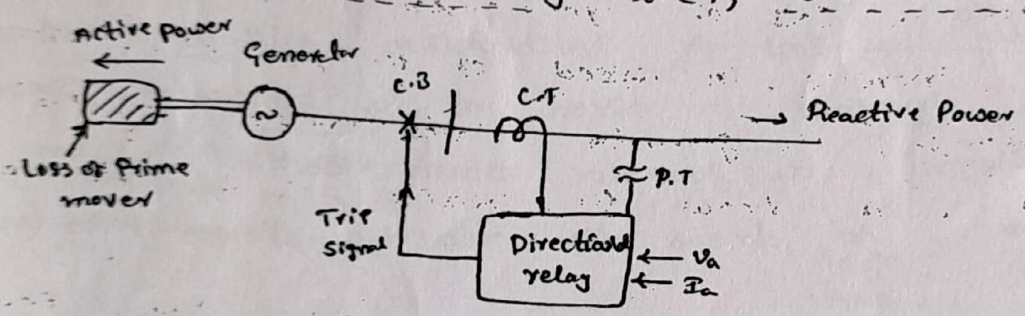 Active power
Generator
C.B
C.T
Reactive Power
Loss of Prime
mover
P.T
Trip
Signal
Directional
relay
Va
Ia